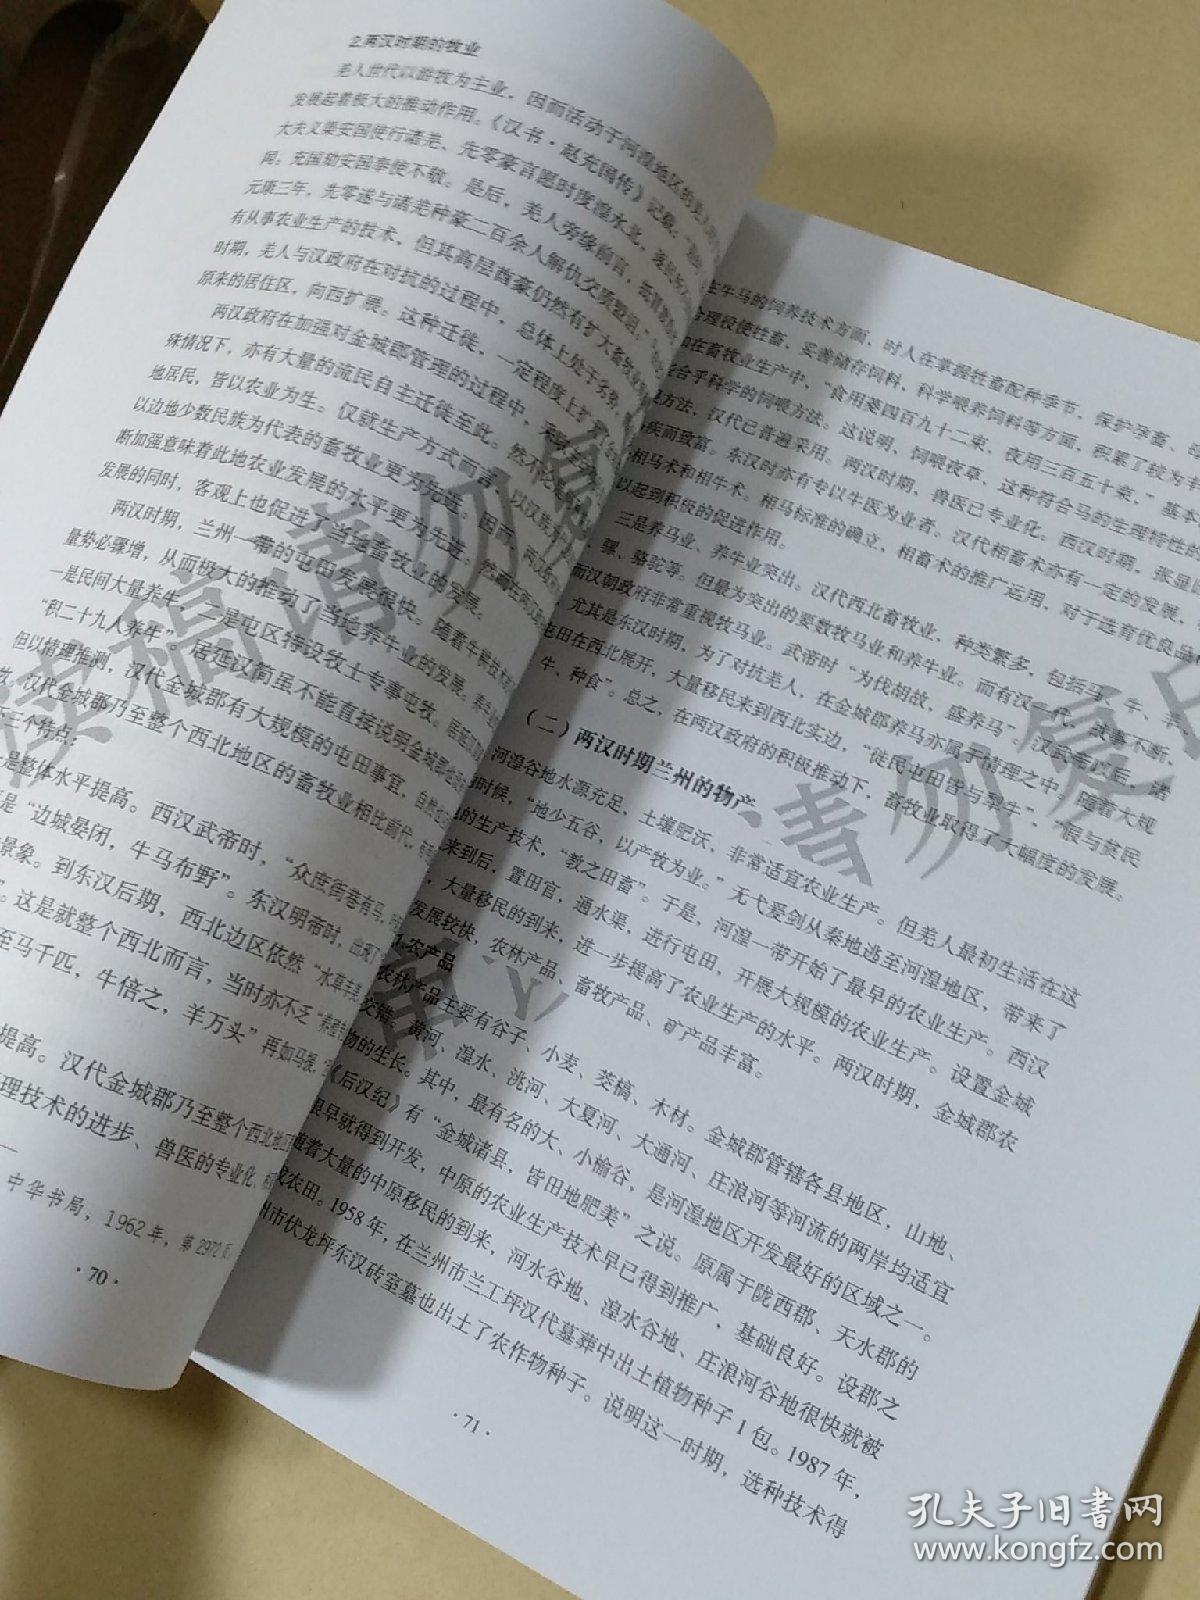 2.两汉时期的牧业
羌人世代以游牧为主业，因而活动于河湟地区的羌人
发展起着极大的推动作用。《汉书·赵充国传》记载：
大夫义渠安国使行诸羌，先零豪言愿时度湟水北，
闻。充国劾安国奉使不敬。是后，羌人旁缘前言，
元康三年，先零遂与诸羌种豪二百余人解仇交质盟诅。”
有从事农业生产的技术，但其高层酋豪仍然有扩大畜牧业
时期，羌人与汉政府在对抗的过程中，总体上处于劣势，
原来的居住区，向西扩展。这种迁徙，一定程度上扩
两汉政府在加强对金城郡管理的过程中，
殊情况下，亦有大量的流民自主迁徙至此。然不
地居民，皆以农业为生。仅就生产方式而言，以汉
以边地少数民族为代表的畜牧业更为先进。因而，两汉
断加强意味着此地农业发展的水平更为先进。
发展的同时，客观上也促进了当地畜牧业的发展。
两汉时期，兰州一带的屯田发展很快。随着牛耕技术
量势必骤增，从而极大的推动了当地养牛业的发展。
一是民间大量养牛，二是屯区特设牧士专事屯牧。居延汉
“积二十九人养牛”，居延汉简虽不能直接说明金城郡
但以情理推测，汉代金城郡有大规模的屯田事宜，自然
牧。汉代金城郡乃至整个西北地区的畜牧业相比前代，
三个特点：
是整体水平提高。西汉武帝时，“众庶街巷有马，
是“边城晏闭，牛马布野”。东汉明帝时，出现了
景象。到东汉后期，西北边区依然“水草丰美
”。这是就整个西北而言，当时亦不乏
至马千匹，牛倍之，羊万头”再如马援，
提高。汉代金城郡乃至整个西北地区
理技术的进步、兽医的专业化、
中华书局，1962年，第2972页
·70·
在牛马的饲养技术方面，时人在掌握牲畜配种季节，保护孕畜，
合理役使牲畜，妥善储存饲料，科学喂养饲料等方面，积累了较为丰
如在畜牧业生产中，“食用茭四百九十二束，夜用三百五十束，”基本
合乎科学的饲喂方法。这说明，饲喂夜草，这种符合马的生理特性的
方法，汉代已普遍采用。两汉时期，兽医已专业化。西汉时期，张里
疾而致富。东汉时亦有专以牛医为业者。汉代相畜术亦有一定的发展，
相马术和相牛术。相马标准的确立，相畜术的推广运用，对于选育优良品
以起到积极的促进作用。
三是养马业、养牛业突出。汉代西北畜牧业，种类繁多，包括马、牛、羊、
骡、骆驼等。但最为突出的要数牧马业和养牛业。而有汉一代，战事不断，
而汉朝政府非常重视牧马业。武帝时“为伐胡故，盛养马”，汉
尤其是东汉时期，为了对抗羌人，在金城郡养马亦属于情理之中。随着大规
屯田在西北展开，大量移民来到西北实边，“徙民屯田皆与犁牛”、“假与贫民
牛、种食”。总之，在两汉政府的积极推动下，畜牧业取得了大幅度的发展。
（二）两汉时期兰州的物产
河湟谷地水源充足，土壤肥沃，非常适宜农业生产。但羌人最初生活在这
的时候，“地少五谷，以产牧为业。”无弋爰剑从秦地逃至河湟地区，带来了
的生产技术，“教之田畜”。于是，河湟一带开始了最早的农业生产。西汉
来到后，置田官，通水渠，进行屯田，开展大规模的农业生产。设置金城
，大量移民的到来，进一步提高了农业生产的水平。两汉时期，金城郡农
发展较快，农林产品、畜牧产品、矿产品丰富。
1.农产品
农林产品主要有谷子、小麦、茭槁、木材。金城郡管辖各县地区，山地、
交错，黄河、湟水、洮河、大夏河、大通河、庄浪河等河流的两岸均适宜
物的生长。其中，最有名的大、小榆谷，是河湟地区开发最好的区域之一。
《后汉纪》有“金城诸县，皆田地肥美”之说。原属于陇西郡、天水郡的
很早就得到开发，中原的农业生产技术早已得到推广，基础良好。设郡之
随着大量的中原移民的到来，河水谷地、湟水谷地、庄浪河谷地很快就被
成农田。1958年，在兰州市兰工坪汉代墓葬中出土植物种子1包。1987年，
州市伏龙坪东汉砖室墓也出土了农作物种子。说明这一时期，选种技术得
·71·
读稿 请勿复
审 请勿复印
孔夫子旧书网
www.kongfz.com